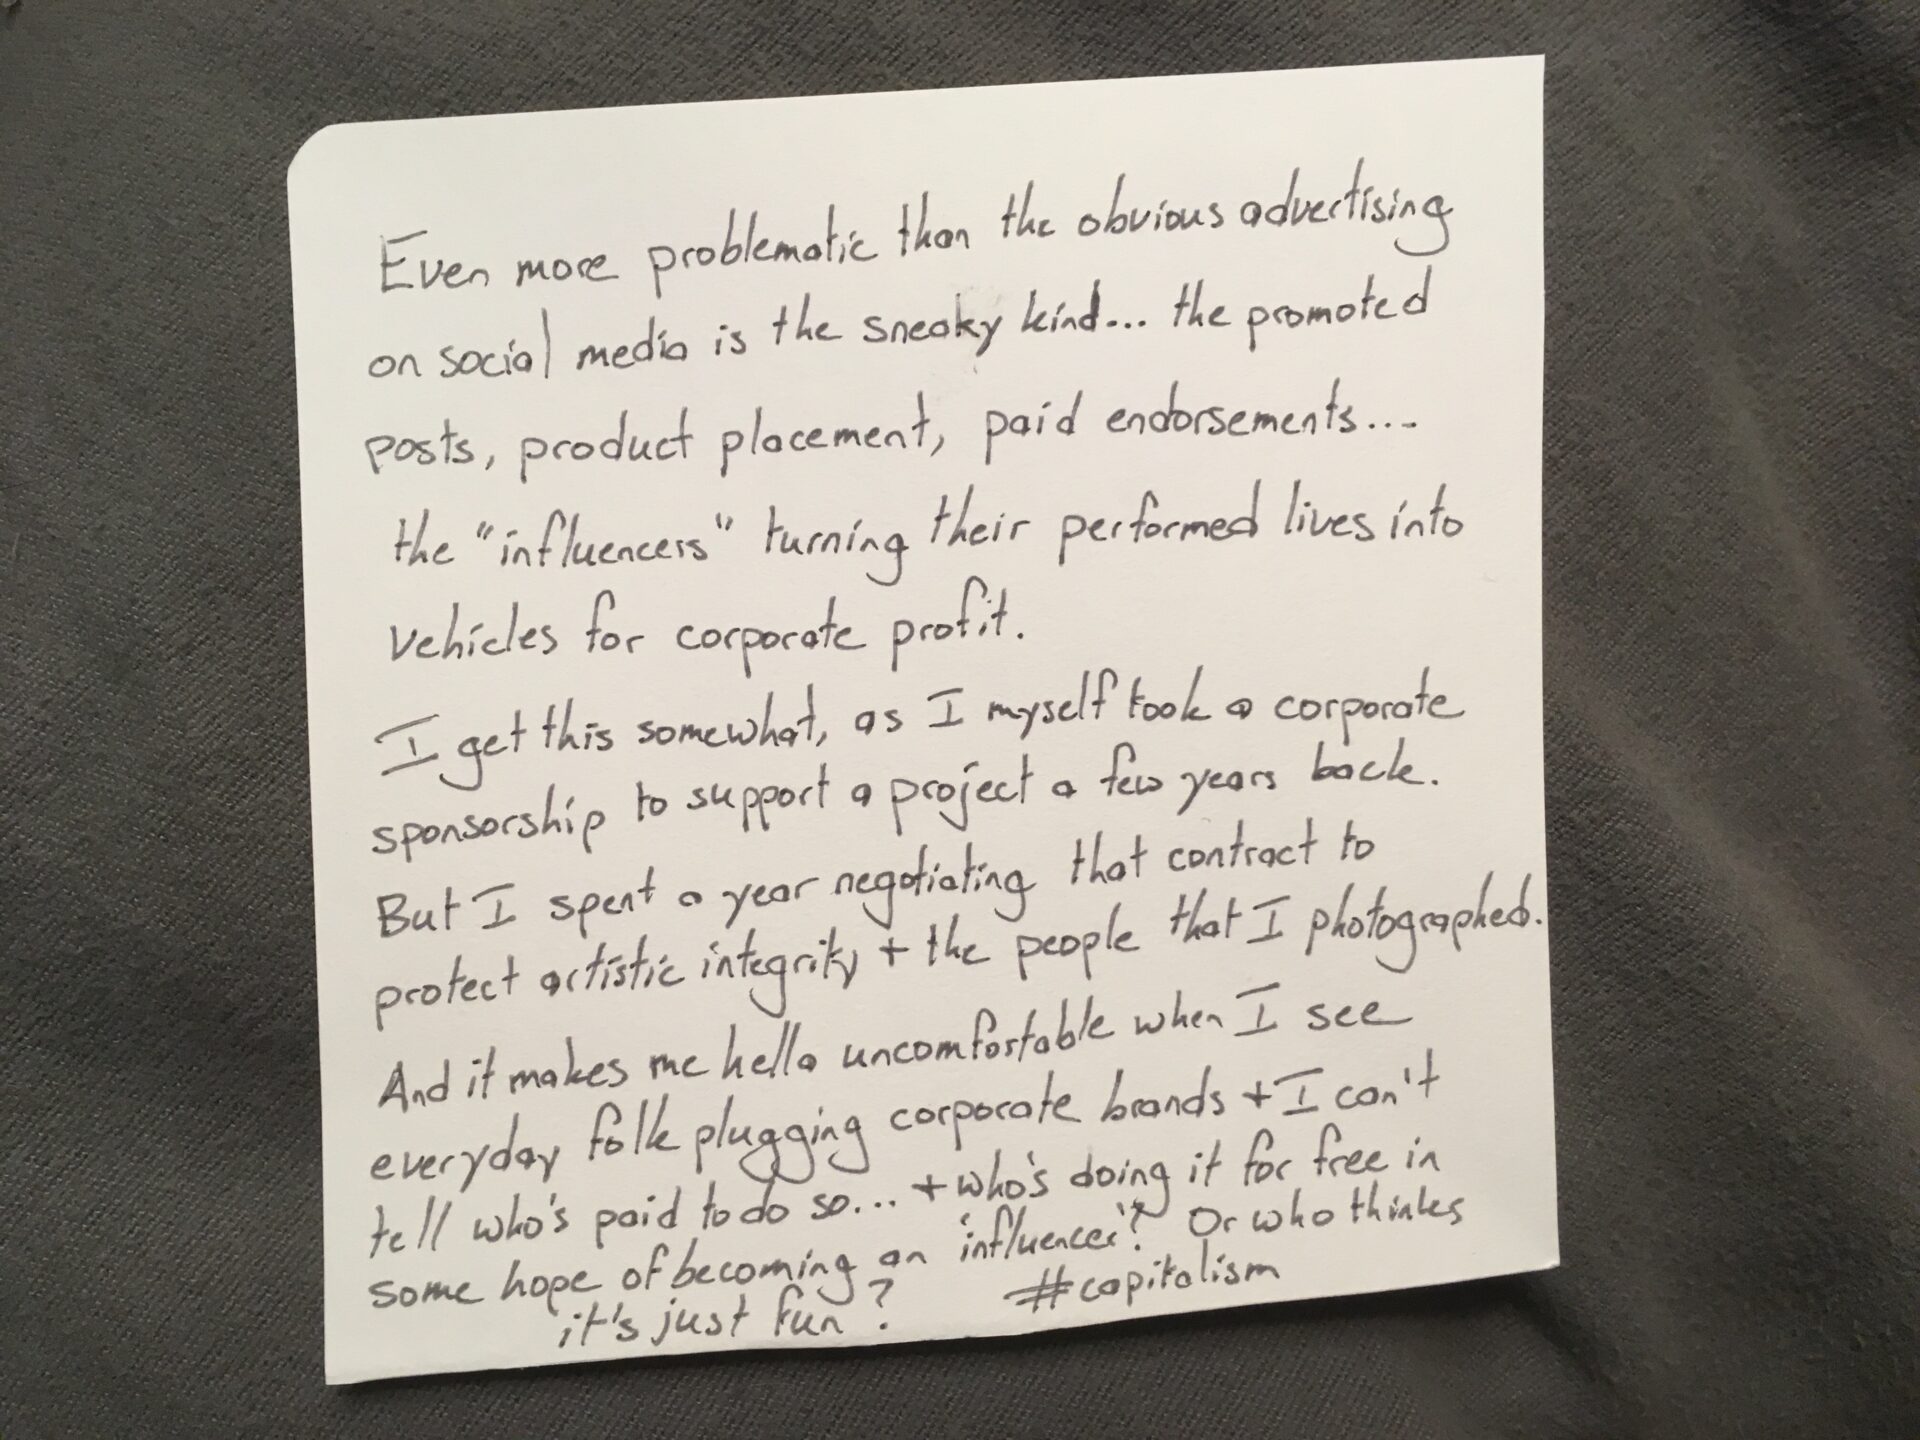 Even more problematic than the obvious advertising
on social media is the sneaky kind... the promoted
posts, product placement, paid endorsements....
the "influencers" turning their performed lives into
vehicles for corporate profit.
I get this somewhat, as I myself took a corporate
sponsorship to support a project a few years back.
But I spent a year negotiating that contract to
protect artistic integrity + the people that I photographed.
And it makes me hella uncomfortable when I see
everyday folk plugging corporate brands + I can't
tell who's paid to do so... + who's doing it for free in
some hope of becoming an 'influencer'? Or who thinks
it's just fun? #capitalism